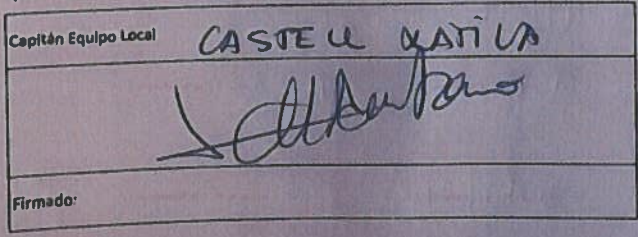 Capitán Equipo Local CASTELL XATIVA
Firmado: